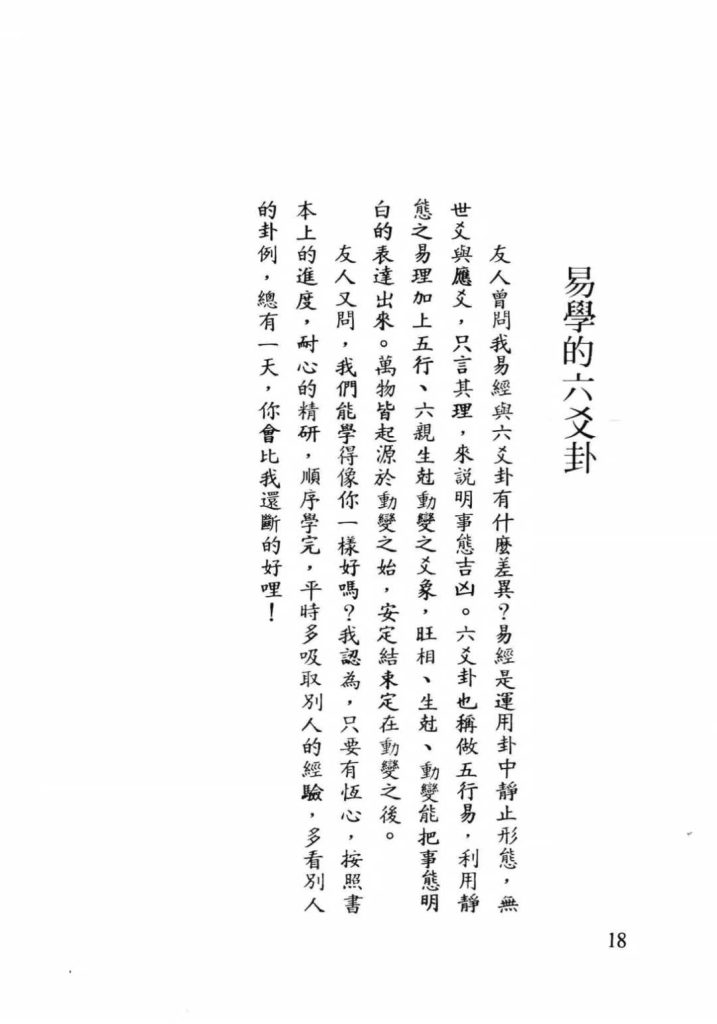 易學的六爻卦
友人曾問我易經與六爻卦有什麼差異？易經是運用卦中靜止形態，無
世爻與應爻，只言其理，來説明事態吉凶。六爻卦也稱做五行易，利用靜
態之易理加上五行、六親生尅動變之爻象，旺相、生尅、動變能把事態明
白的表達出來。萬物皆起源於動變之始，安定結束定在動變之後。
友人又問，我們能學得像你一樣好嗎？我認為，只要有恆心，按照書
本上的進度，耐心的精研，順序學完，平時多吸取別人的經驗，多看別人
的卦例，總有一天，你會比我還斷的好哩！
18